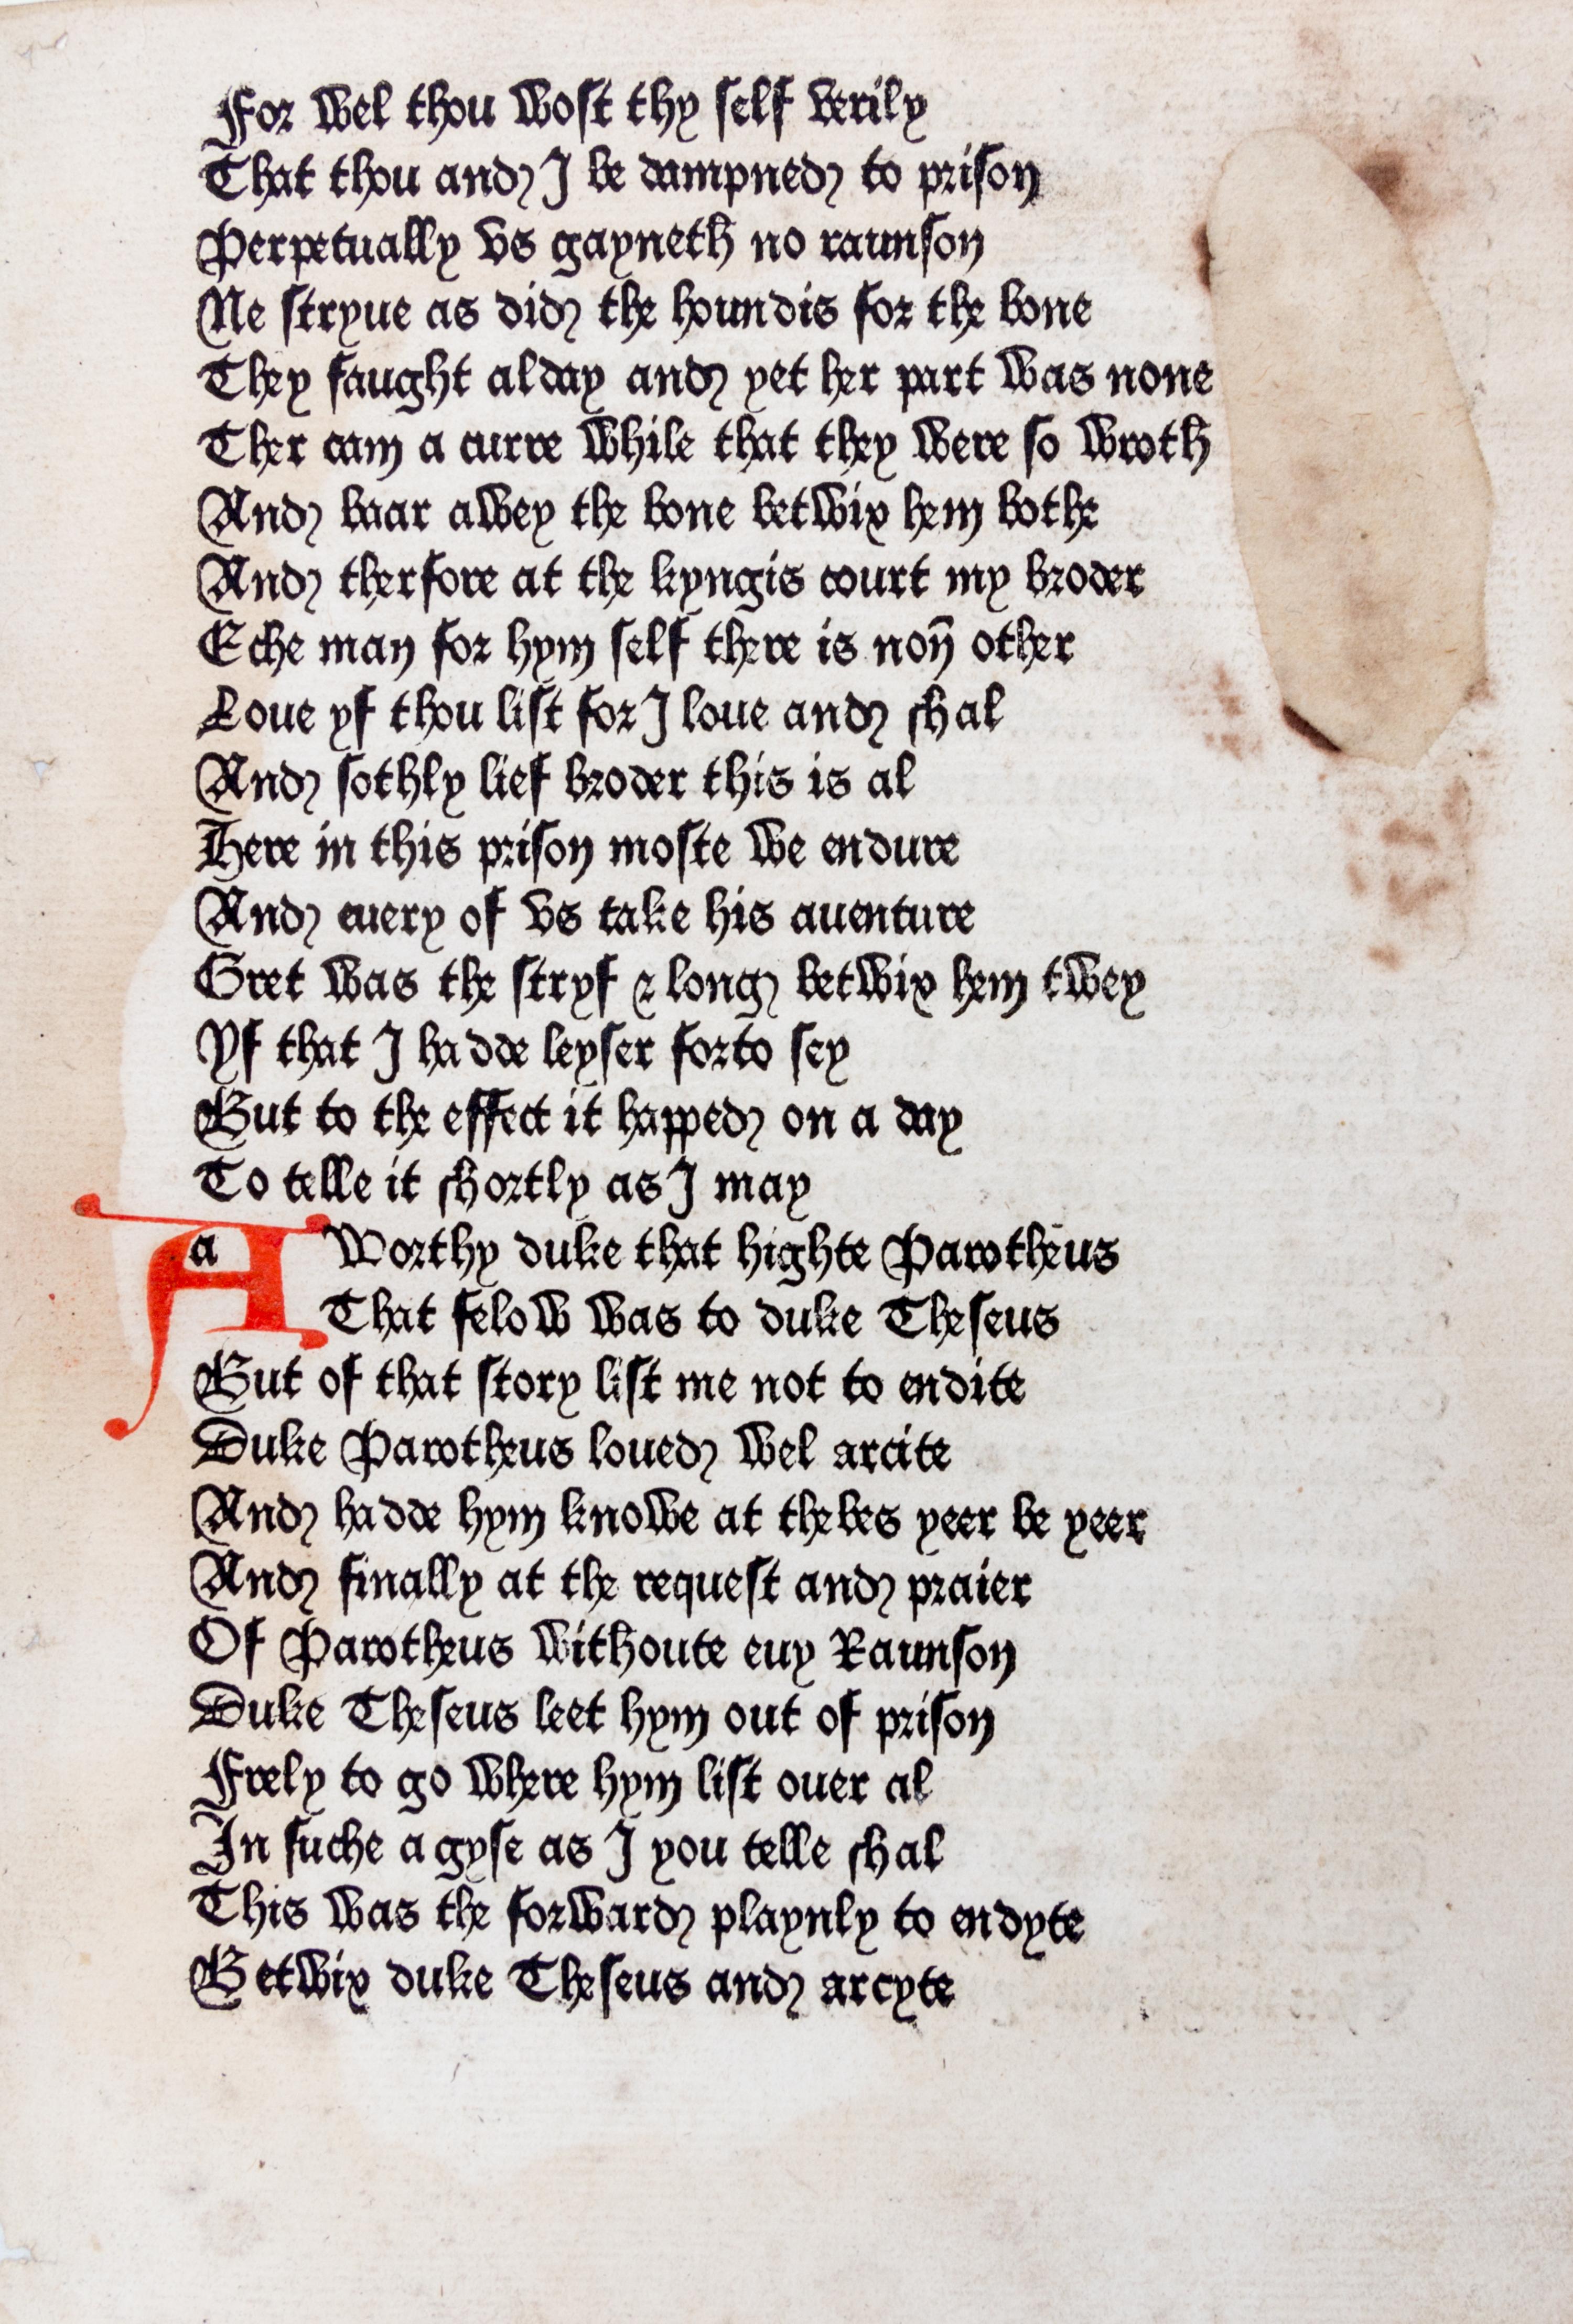 For wel thou wost thy self verily
That thou and I be dampned to prison
Perpetually vs gayneth no raunson
Ne stryue as did the houndis for the bone
They faught alday and yet her part was none
Ther cam a curre while that they were so wroth
And baar awey the bone betwix hem bothe
And therfore at the kyngis court my broder
Eche man for hym self there is non̄ other
Loue yf thou list for I loue and shal
And sothly lief broder this is al
Here in this prison moste we endure
And euery of vs take his auenture
Gret was the stryf & long betwix hem twey
Yf that I hadde leyser forto sey
But to the effect it happed on a day
To telle it shortly as I may
a Worthy duke that highte Parotheus
That felow was to duke Theseus
But of that story list me not to endite
Duke Parotheus loued wel arcite
And hadde hym knowe at thebes yeer be yeer
And finally at the request and praier
Of Parotheus withoute euy Raunson
Duke Theseus leet hym out of prison
Frely to go where hym list ouer al
In suche a gyse as I you telle shal
This was the forward playnly to endyte
Betwix duke Theseus and arcyte